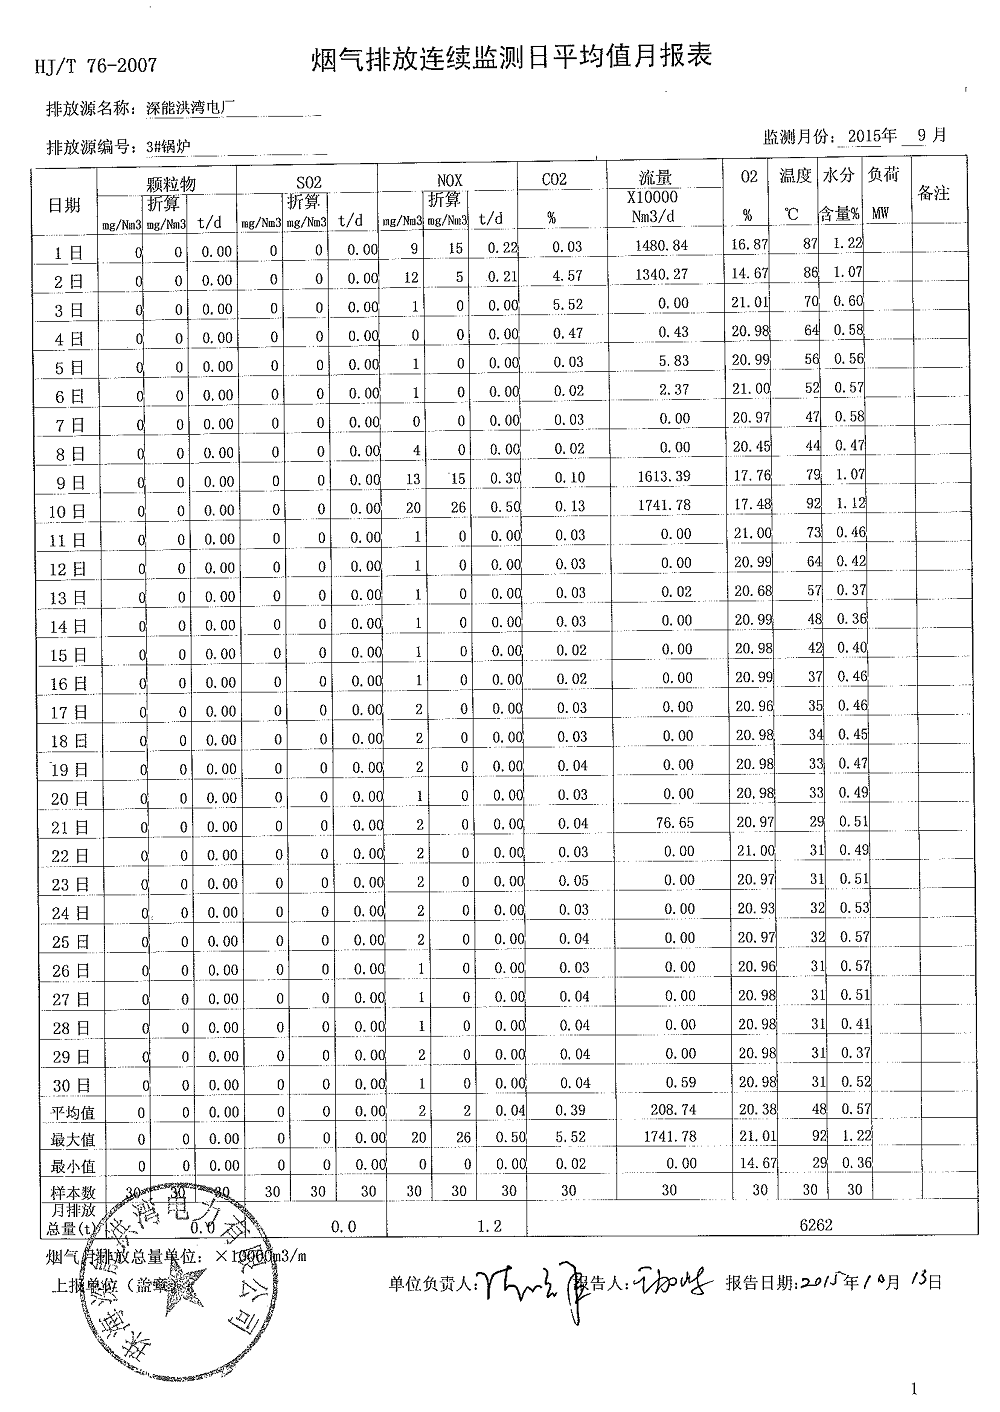 HJ/T 76-2007
烟气排放连续监测日平均值月报表
排放源名称: 深能洪湾电厂
排放源编号: 3#锅炉
监测月份: 2015年 9 月
日期 颗粒物 SO2 NOX CO2 流量 O2 温度 水分 负荷 备注
折算 折算 折算 X10000
mg/Nm3 mg/Nm3 t/d mg/Nm3 mg/Nm3 t/d mg/Nm3 mg/Nm3 t/d % Nm3/d % ℃ 含量% MW
1 日 0 0 0.00 0 0 0.00 9 15 0.22 0.03 1480.84 16.87 87 1.22
2 日 0 0 0.00 0 0 0.00 12 5 0.21 4.57 1340.27 14.67 86 1.07
3 日 0 0 0.00 0 0 0.00 1 0 0.00 5.52 0.00 21.01 70 0.60
4 日 0 0 0.00 0 0 0.00 0 0 0.00 0.47 0.43 20.98 64 0.58
5 日 0 0 0.00 0 0 0.00 1 0 0.00 0.03 5.83 20.99 56 0.56
6 日 0 0 0.00 0 0 0.00 1 0 0.00 0.02 2.37 21.00 52 0.57
7 日 0 0 0.00 0 0 0.00 0 0 0.00 0.03 0.00 20.97 47 0.58
8 日 0 0 0.00 0 0 0.00 4 0 0.00 0.02 0.00 20.45 44 0.47
9 日 0 0 0.00 0 0 0.00 13 15 0.30 0.10 1613.39 17.76 79 1.07
10 日 0 0 0.00 0 0 0.00 20 26 0.50 0.13 1741.78 17.48 92 1.12
11 日 0 0 0.00 0 0 0.00 1 0 0.00 0.03 0.00 21.00 73 0.46
12 日 0 0 0.00 0 0 0.00 1 0 0.00 0.03 0.00 20.99 64 0.42
13 日 0 0 0.00 0 0 0.00 1 0 0.00 0.03 0.02 20.68 57 0.37
14 日 0 0 0.00 0 0 0.00 1 0 0.00 0.03 0.00 20.99 48 0.36
15 日 0 0 0.00 0 0 0.00 1 0 0.00 0.02 0.00 20.98 42 0.40
16 日 0 0 0.00 0 0 0.00 1 0 0.00 0.02 0.00 20.99 37 0.46
17 日 0 0 0.00 0 0 0.00 2 0 0.00 0.03 0.00 20.96 35 0.46
18 日 0 0 0.00 0 0 0.00 2 0 0.00 0.03 0.00 20.98 34 0.45
19 日 0 0 0.00 0 0 0.00 2 0 0.00 0.04 0.00 20.98 33 0.47
20 日 0 0 0.00 0 0 0.00 1 0 0.00 0.03 0.00 20.98 33 0.49
21 日 0 0 0.00 0 0 0.00 2 0 0.00 0.04 76.65 20.97 29 0.51
22 日 0 0 0.00 0 0 0.00 2 0 0.00 0.03 0.00 21.00 31 0.49
23 日 0 0 0.00 0 0 0.00 2 0 0.00 0.05 0.00 20.97 31 0.51
24 日 0 0 0.00 0 0 0.00 2 0 0.00 0.03 0.00 20.93 32 0.53
25 日 0 0 0.00 0 0 0.00 2 0 0.00 0.04 0.00 20.97 32 0.57
26 日 0 0 0.00 0 0 0.00 1 0 0.00 0.03 0.00 20.96 31 0.57
27 日 0 0 0.00 0 0 0.00 1 0 0.00 0.04 0.00 20.98 31 0.51
28 日 0 0 0.00 0 0 0.00 1 0 0.00 0.04 0.00 20.98 31 0.41
29 日 0 0 0.00 0 0 0.00 2 0 0.00 0.04 0.00 20.98 31 0.37
30 日 0 0 0.00 0 0 0.00 1 0 0.00 0.04 0.59 20.98 31 0.52
平均值 0 0 0.00 0 0 0.00 2 2 0.04 0.39 208.74 20.38 48 0.57
最大值 0 0 0.00 0 0 0.00 20 26 0.50 5.52 1741.78 21.01 92 1.22
最小值 0 0 0.00 0 0 0.00 0 0 0.00 0.02 0.00 14.67 29 0.36
样本数 30 30 30 30 30 30 30 30 30 30 30 30 30 30
月排放
总量(t) 0.0 0.0 1.2 6262
烟气月排放总量单位: ×10000m3/m
上报单位（盖章）: 单位负责人: 报告人: 报告日期: 2015年10月13日
珠海深能洪湾电力有限公司
1